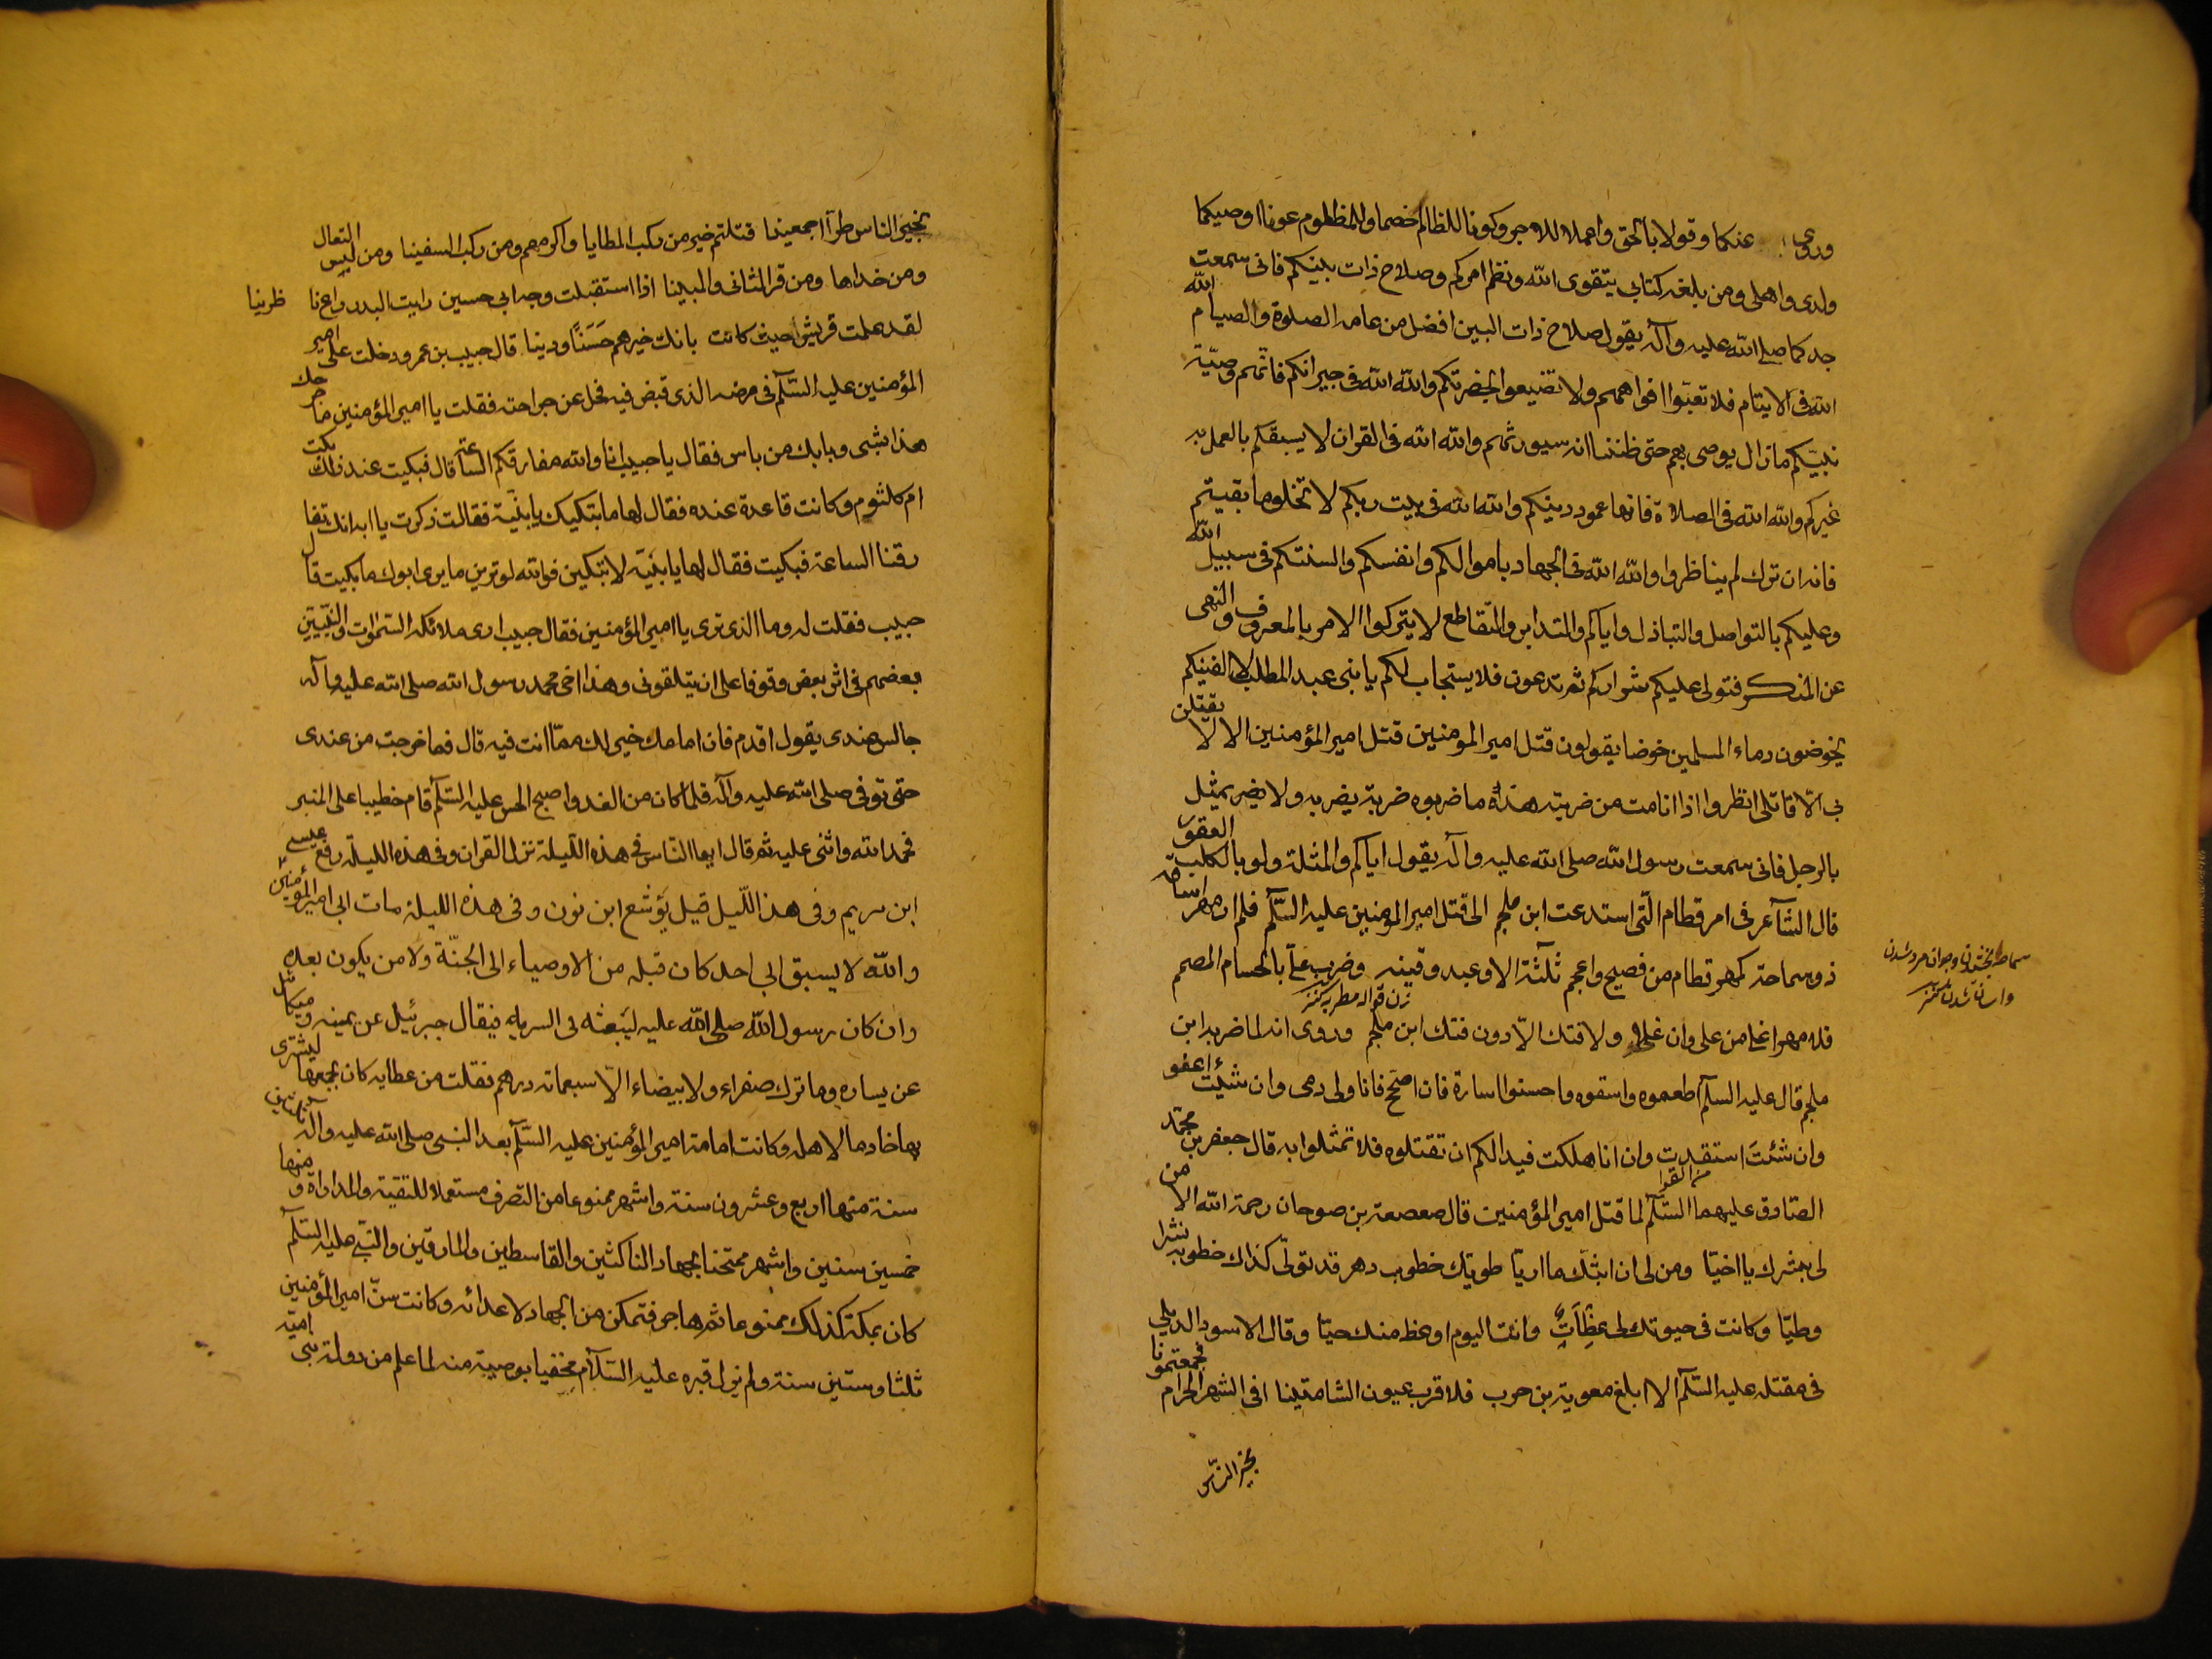 وروى عنكما وقولا بالحق واعملا للاجر وكونا للظالم خصما وللمظلوم عونا اوصيكما
ولدى واهلى ومن بلغه كتابى بتقوى الله ونظم امركم وصلاح ذات بينكم فانى سمعت
جدكما صلى الله عليه وآله يقول صلاح ذات البين افضل من عامه الصلوة والصيام الله
الله فى الايتام فلا تغبوا افواههم ولا تضيعوا بحضرتكم والله الله فى جيرانكم فانهم وصيّة
نبيّكم مازال يوصى بهم حتى ظننا انه سيورثهم والله الله فى القران لا يسبقكم بالعمل به
غيركم والله الله فى الصلاة فانها عمود دينكم والله الله فى بيت ربكم لا تخلوها بقيتم
فانه ان ترك لم يناظروا والله الله فى الجهاد باموالكم وانفسكم والسنتكم فى سبيل الله
وعليكم بالتواصل والتباذل واياكم والتدابر والتقاطع لا يتركوا الامر بالمعروف والنهى
عن المنكر فتولى عليكم شراركم ثم تدعون فلا يستجاب لكم يا بنى عبد المطلب لا الفينكم
يخوضون دماء المسلمين خوضا يقولون قتل امير المومنين قتل امير المؤمنين الا لا يقتلن
بى الّا قاتلى انظروا اذا انا مت من ضربته هذه ما ضربوه ضربة بضربه ولا يضر يمثل
بالرجل فانى سمعت رسول الله صلى الله عليه وآله يقول اياكم والمثلة ولو بالكلب العقور
قال الشاعر فى امر قطام الّتى استدعت ابن ملجم الى قتل امير المومنين عليه السّلم فلم ار مهرا ساقه
ذو سماحة كمهر قطام من فصيح واعجم ثلثة الاو عبد وقينه وضرب علىّ بالحسام المصمم
زن قواله مطربه كنيز
فلا مهر اغلى من على وان غلى ولا فتك الّا دون فتك ابن ملجم وروى انه لما ضربه ابن
ملجم قال عليه السلم اطعموه واسقوه واحسنوا اساره فان اصحّ فانا ولى دمى وان شئت اعفو
وان شئت استقدت وان انا هلكت فبدا لكم ان تقتلوه فلا تمثلوا به قال جعفر بن محمّد
الصّادق عليهما السّلم لما قتل امير المؤمنين قال صعصعة بن صوحان رحمة الله الا من
لى بنشرك يا اخيّا ومن لى ان ابثّك ما لديّا طويتك خطوب دهر قد تولّى كذاك خطوبه نشرا
وطيّا وكانت فى حيوتك لى عظات وانت اليوم اوعظ منك حيّا وقال الاسود الديلى
فى مقتله عليه السّلم الا ابلغ معوية بن حرب فلا قرب عيون الشامتينا افى الشهر الحرام فجمعتمونا
بخير النّاس
بخير الناس طرا اجمعينا قتلتم خير من ركب المطايا واكرمهم ومن ركب السفينا ومن لبس النعال
ومن حذاها ومن قرا المثانى والمبينا اذا استقبلت وجه ابى حسين رايت البدر راع نا ظرينا
لقد علمت قريش حيث كانت بانك خيرهم حَسَنًا ودينا قال حبيب بن عمرو دخلت على امير
المؤمنين عليه السّلم فى مرضه الذى قبض فيه فحل عن جراحته فقلت يا امير المؤمنين ما جرحك
هذا بشى وما بك من باس فقال يا حبيب انا والله مفارقكم الساعة قال فبكيت عند ذلك بكت
ام كلثوم وكانت قاعدة عنده فقال لها ما يبكيك يا بنيّة فقالت ذكرت يا ابه انك تفا
رقنا الساعة فبكيت فقال لها يا بنيّه لا تبكين فوالله لو ترين ما يرى ابوك ما بكيت قال
حبيب فقلت له وما الذى ترى يا امير المؤمنين فقال حبيب ارى ملائكه السّموات والنّبيّين
بعضهم فى اثر بعض وقوفا على ان يتلقونى وهذا اخى محمد رسول الله صلى الله عليه وآله
جالس عندى يقول اقدم فان امامك خير لك ممّا انت فيه قال فما خرجت من عندى
حتى توفى صلى الله عليه وآله فلما كان من الغد واصبح الحسن عليه السّلم قام خطيبا على المنبر
فحمد الله واثنى عليه ثم قال ايها النّاس فى هذه اللّيلة نزل القران وفى هذه الليلة رفع عيسى
ابن مريم وفى هذا اللّيل قيل يوشع ابن نون وفى هذه الليلة مات ابى امير المؤمنين
والله لا يسبق ابى احد كان قبله من الاوصياء الى الجنّة ولا من يكون بعده
وان كان رسول الله صلى الله عليه ليبعثه فى السريه فيقال جبرئيل عن يمينه وميكائيل
عن يساره وما ترك صفراء ولا بيضاء الّا سبعمائه درهم فقلت من عطايه كان يجمعها ليشترى
بها خادما لاهله وكانت امامة امير المؤمنين عليه السّلم بعد النبى صلى الله عليه وآله ثلثين
سنة منها اربع وعشرون سنة واشهر ممنوعا من التصرف مستعملا للتقية والمداراة ومنها
خمسين سنين واشهر ممتحنا بجهاد الناكثين والقاسطين والمارقين والنّبى عليه السّلم
كان بمكة كذلك ممنوعا ثم هاجر فتمكن من الجهاد لاعدائه وكانت سنّ امير المؤمنين
ثلثا وستين سنة ولم يزل قبره عليه السّلام مخفيا بوصية منه لما علم من دولة بنى اميّه